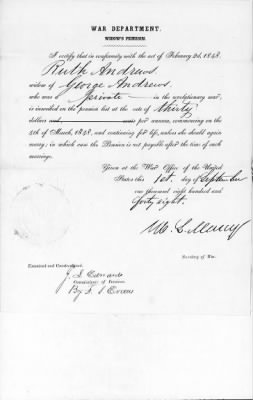 WAR DEPARTMENT.
WIDOW'S PENSION.
I certify that in conformity with the act of February 2d, 1848.
Ruth Andrews
widow of George Andrews
who was a private in the revolutionary war,
is inscribed on the pension list at the rate of thirty
dollars and cents per annum, commencing on the
4th of March, 1848, and continuing for life, unless she should again
marry; in which case the Pension is not payable after the time of such
marriage.
Given at the War Office of the United
States this 1st. day of September
one thousand eight hundred and
forty eight.
W. L. Marcy
Secretary of War.
Examined and Countersigned.
J. L. Edwards
Commissioner of Pensions.
By Evans